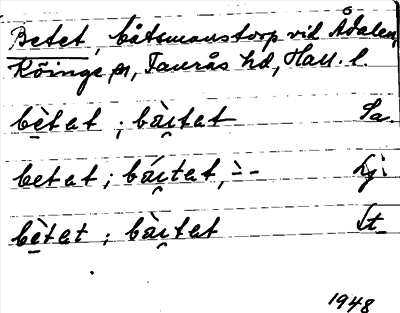 Betet, båtsmanstorp vid Ådalen,
Köinge sn, Faurås hd, Hall. l.
bètat ; bàitat Sa.
betat ; báitat, `- - Lj:
bètat ; bàitat St
1948